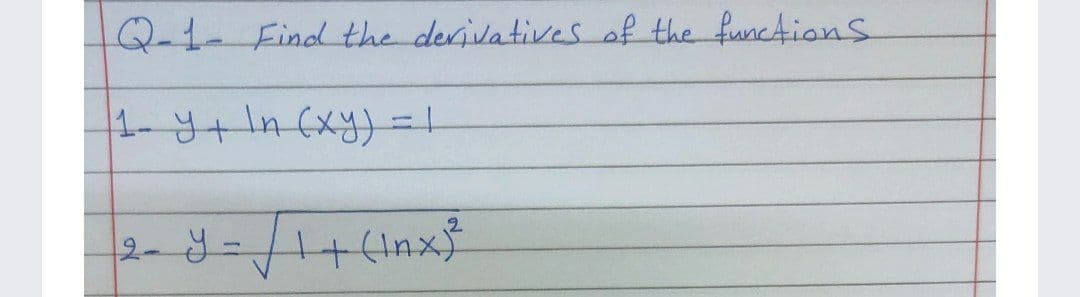 Q-1- Find the derivatives of the functions
1- y + ln (xy) = 1
2- y = √1 + (lnx)²